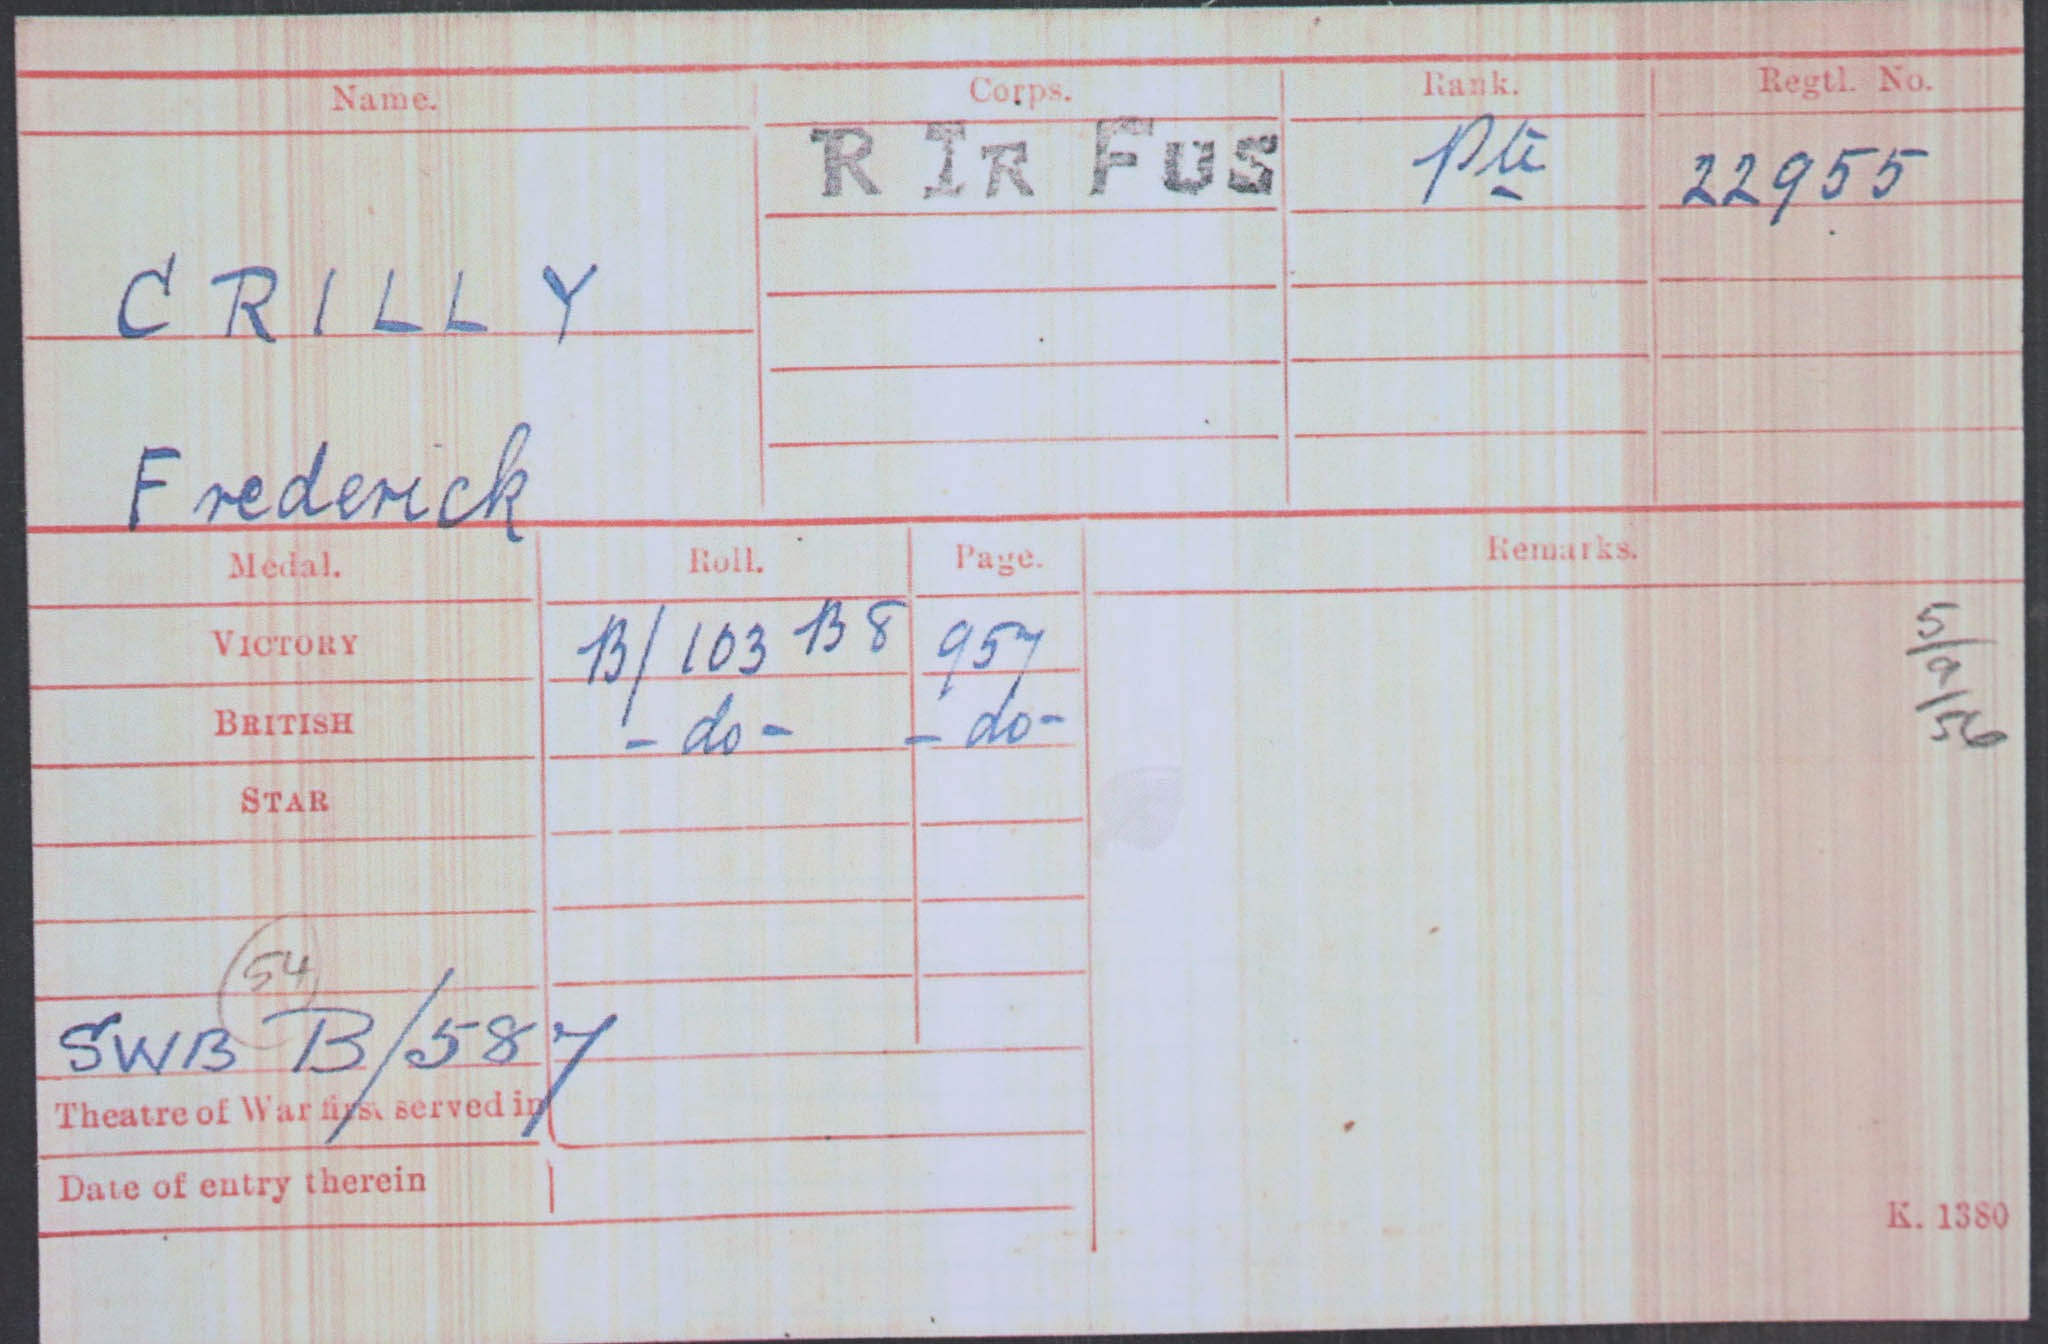 Name. Corps. Rank. Regtl. No.
R IR FUS Pte 22955
CRILLY
Frederick
Medal. Roll. Page. Remarks.
VICTORY B/103 B8 957
BRITISH -do- -do-
STAR
54
SWB B/587
Theatre of War first served in
Date of entry therein
K. 1380